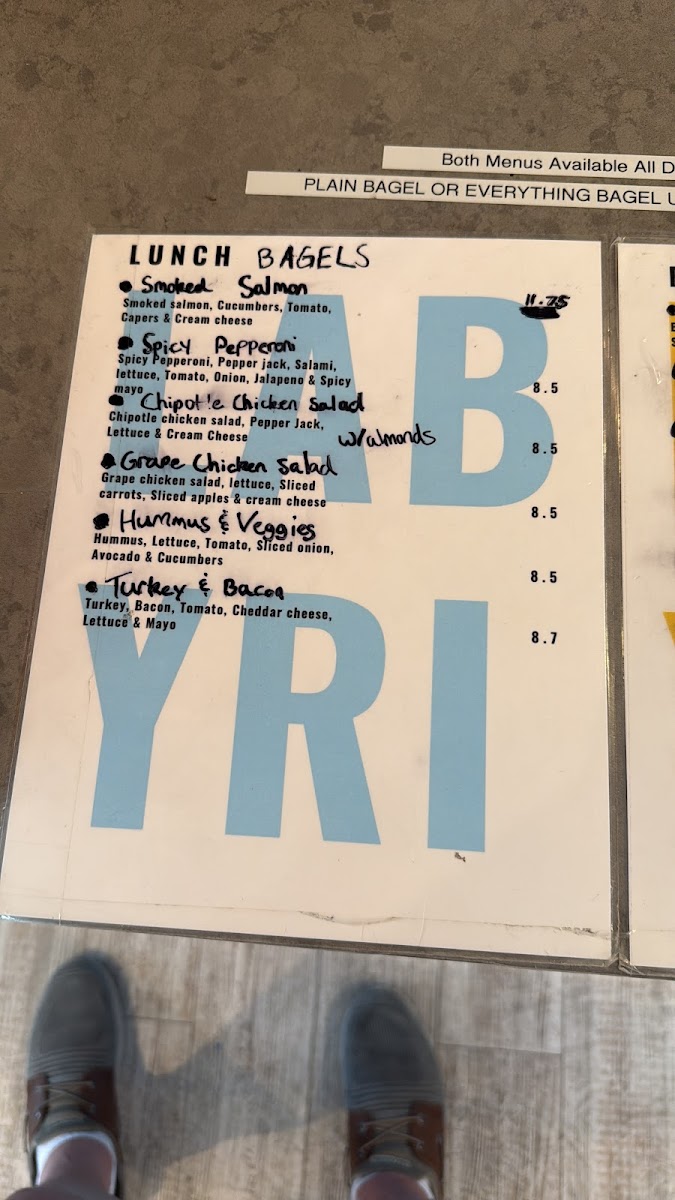 Both Menus Available All D
PLAIN BAGEL OR EVERYTHING BAGEL U
LUNCH BAGELS
Smoked Salmon
11.75
Smoked salmon, Cucumbers, Tomato,
Capers & Cream cheese
Spicy Pepperoni
Spicy Pepperoni, Pepper jack, Salami,
lettuce, Tomato, Onion, Jalapeno & Spicy
mayo
8.5
Chipotle Chicken Salad
Chipotle chicken salad, Pepper Jack,
Lettuce & Cream Cheese
8.5
w/almonds
Grape Chicken Salad
Grape chicken salad, lettuce, Sliced
carrots, Sliced apples & cream cheese
8.5
Hummus & Veggies
Hummus, Lettuce, Tomato, Sliced onion,
Avocado & Cucumbers
8.5
Turkey & Bacon
Turkey, Bacon, Tomato, Cheddar cheese,
Lettuce & Mayo
8.7
IAB
YRI